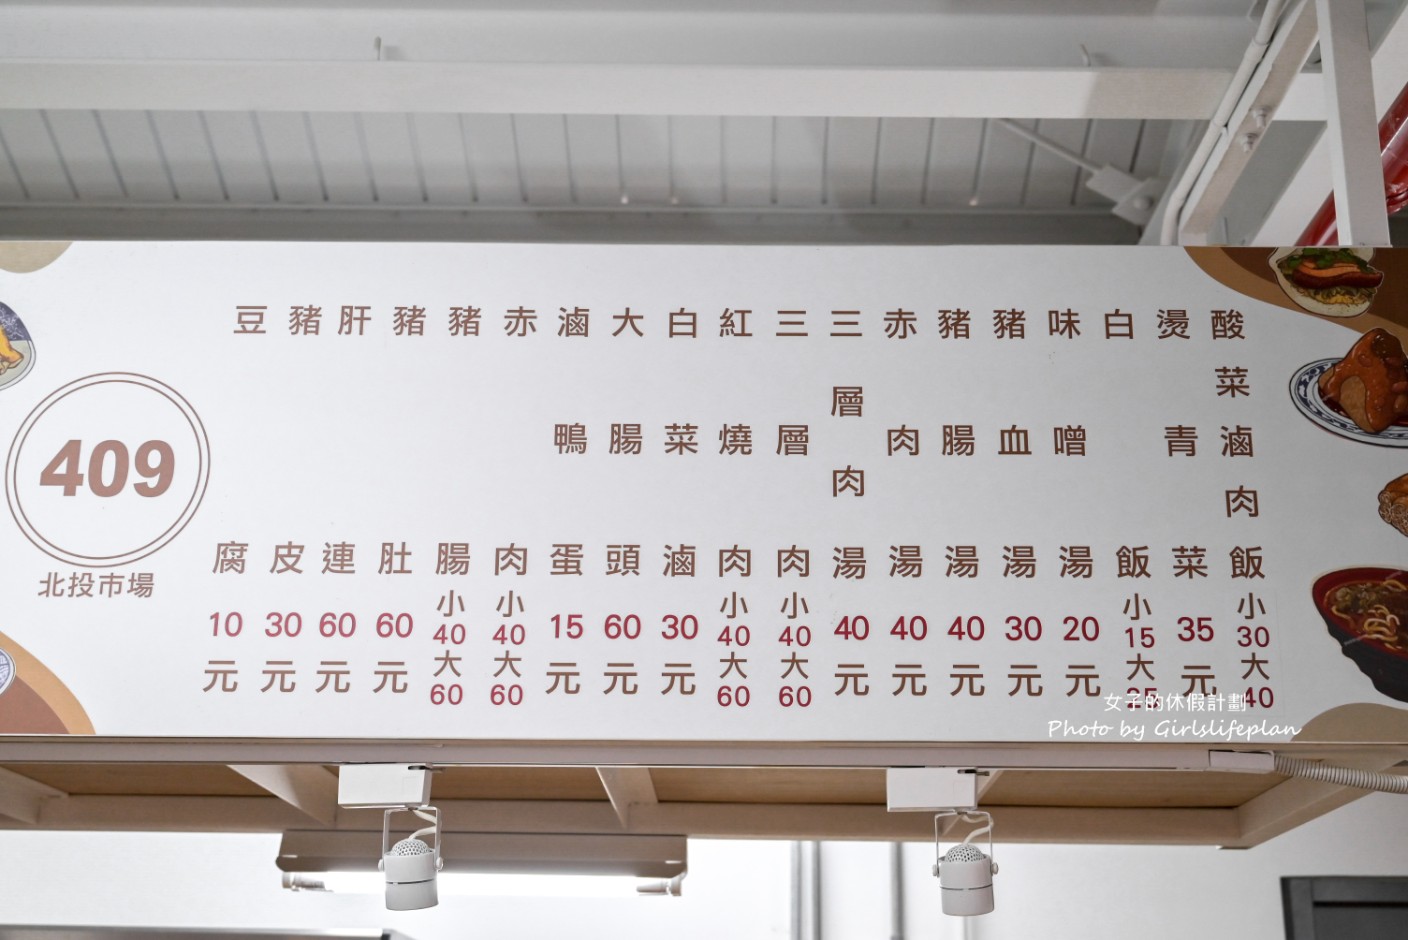 酸菜滷肉飯 小30 大40
燙青菜 35元
白飯 小15 大
味噌湯 20元
豬血湯 30元
豬腸湯 40元
赤肉湯 40元
三層肉湯 40元
三層肉 小40 大60
紅燒肉 小40 大60
白菜滷 30元
大腸頭 60元
滷鴨蛋 15元
赤肉 小40 大60
豬腸 小40 大60
豬肚 60元
肝連 60元
豬皮 30元
豆腐 10元
409
北投市場
女子的休假計劃
Photo by Girlslifeplan